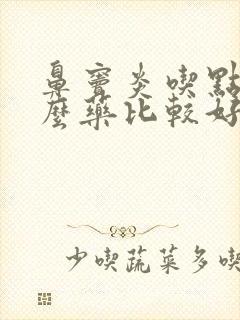 鼻竇炎喫點
麼藥比較好
少喫蔬菜多喫